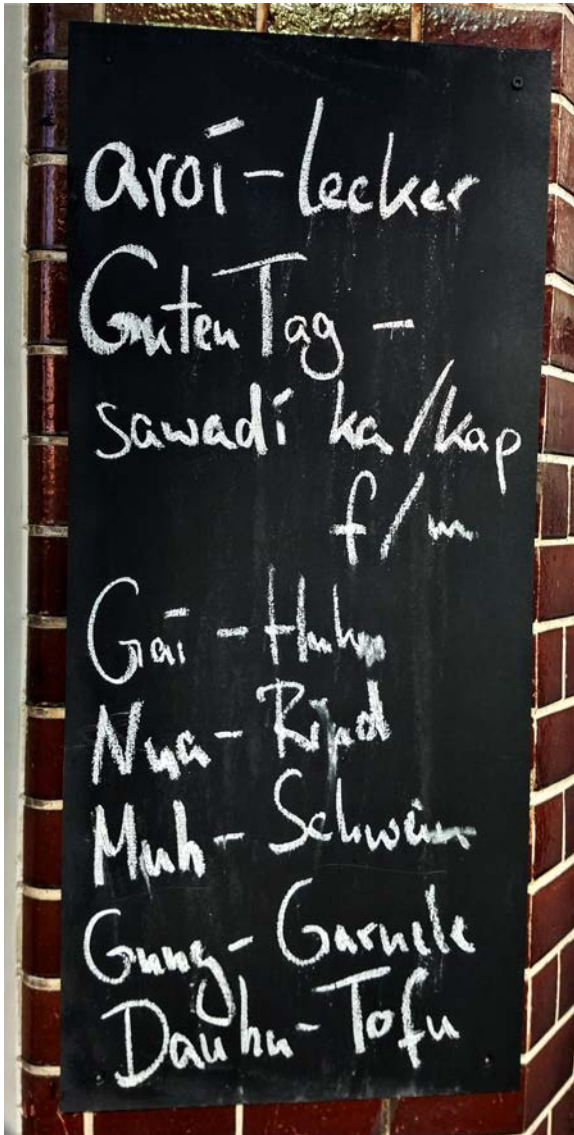 aroi - lecker
Guten Tag -
sawadi ka/kap
f/m
Gai - Huhn
Nya - Rind
Muh - Schwein
Gung - Garnele
Dauhu - Tofu